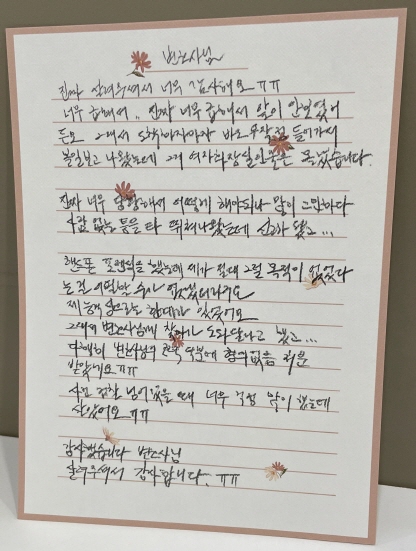 변호사님
진짜 살려주셔서 너무 감사해요 ㅠㅠ
너무 급해서.. 진짜 너무 급해서 앞이 안보였어
든요 그래서 도착하자마자 바로 무작정 들어가서
볼일보고 나왔는데 그게 여자화장실인줄은 몰랐습니다.
진짜 너무 당황해서 어떻게 해야되나 많이 고민하다
사람 없는 틈을 타 뛰쳐나왔는데 신고가 됐고...
핸드폰 포렌식을 했는데 제가 절대 그럴 목적이 없었다
는 건 어필할 수가 없었더라구요
제 능력으로는 한계가 있었어요
그래서 변호사님께 찾아가 도와달라고 했고...
다행히 변호사님의 덕분에 혐의없음 처분
받았네요 ㅠㅠ
사건 검찰 넘어갔을 때 너무 걱정 많이 했는데
살았어요 ㅠㅠ
감사했습니다 변호사님
살려주셔서 감사합니다. ㅠㅠ